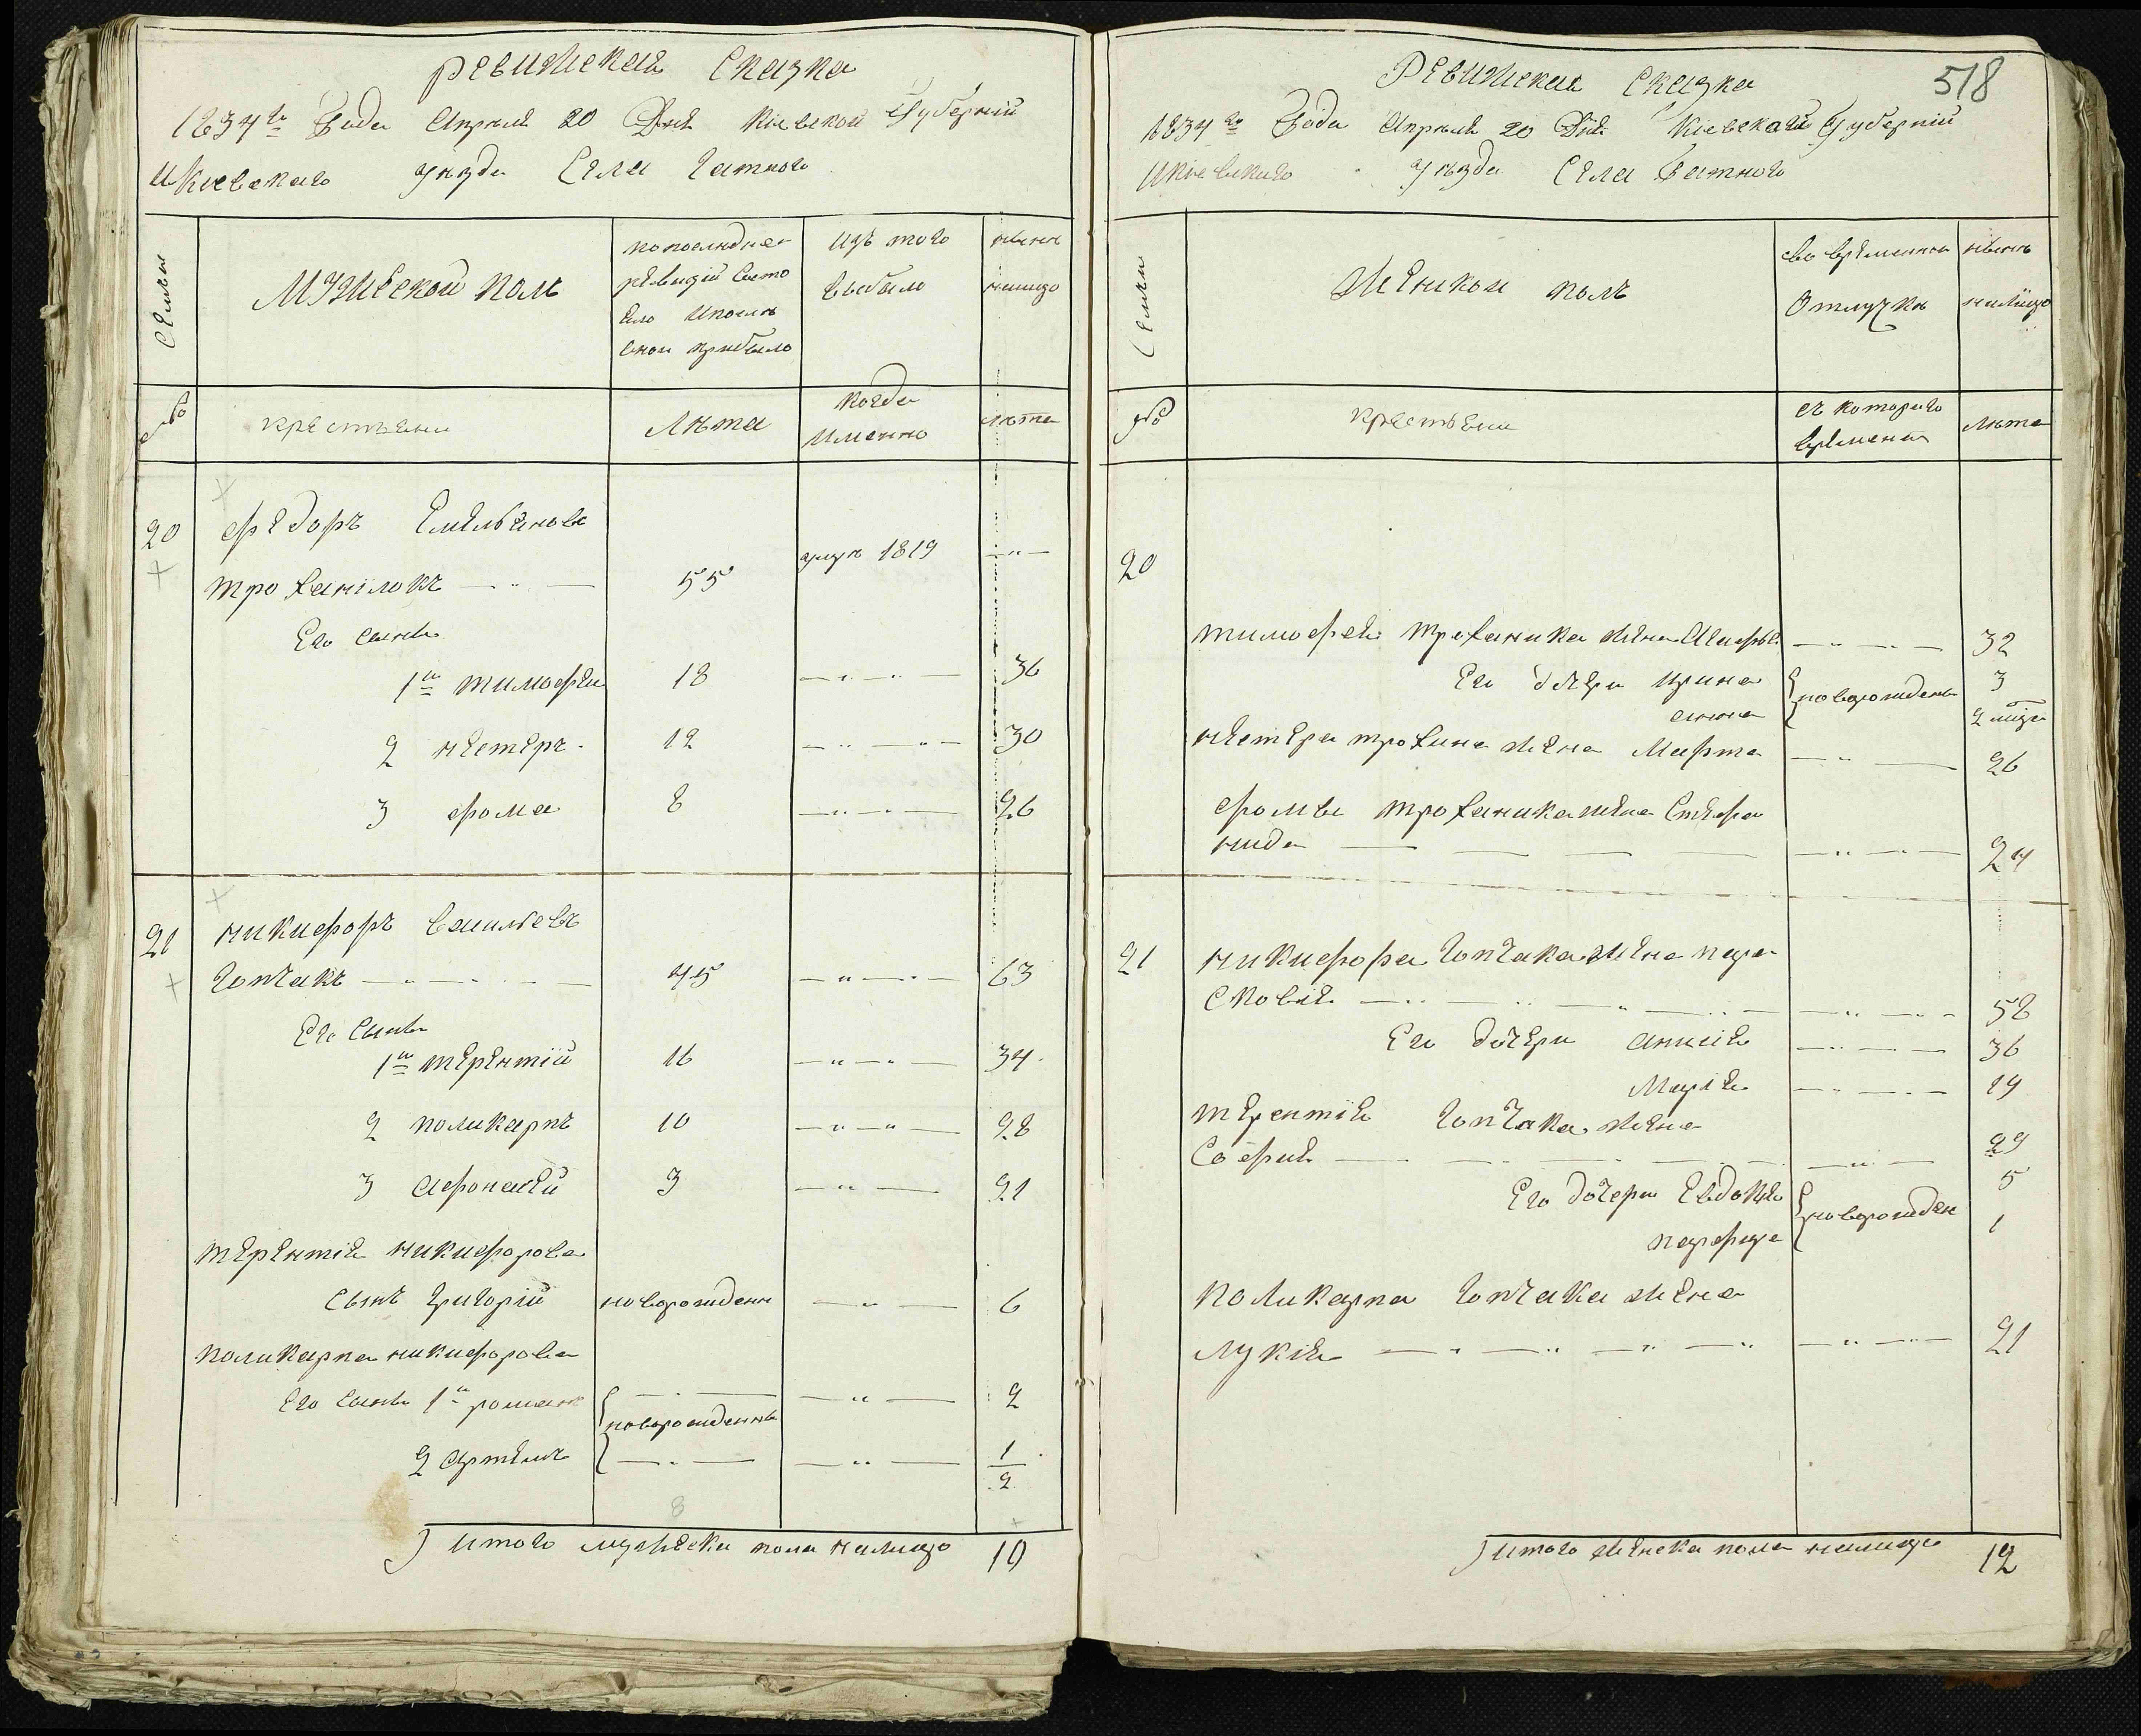 ревижская Сказка
1834го Года Апреля 20 Дня Кіевской Губерніи
и Кіевскаго уѣзда Села Гатного
Семьи
Мужеской полъ
по последней
ревизіи Состо
яло и после
оной прибыло
изъ того
выбыло
ныне
налицо
№
крестьяни
Лѣта
когда
именно
лѣта
20
Федоръ Емельяновъ
троханілокъ
55
умре 1819
Его сынъ
1й тимофей
18
36
2 нестеръ
12
30
3 фома
8
26
21
никифоръ Васильевъ
Гопчакъ
45
63
Его Сынъ
1й терентій
16
34
2 поликарпъ
10
28
3 афонасей
3
21
терентія никифорова
Сынъ Григорій
новорожденъ
6
поликарпа никифорова
Его Сынъ 1й романъ
новорожденнъ
2
2 Артемъ
1/2
8
итого мужеска пола налицо
10
518
Ревижская сказка
1834го Года Апреля 20 Дня Кіевской Губерніи
и Кіевскаго уѣзда Села Гатного
Семьи
Женской полъ
во временной
Отлучкѣ
ныне
налицо
№
крестьяни
съ котораго
времени
лѣта
20
тимофея троханика жена
32
Его дочери ирина
новорожденъ
3
анна
2
нестера трохина жена Марта
26
фомы троханика жена Стефа
нида
24
21
никифора Гопчака жена пара
сковія
58
Его дочери анисія
36
Марія
19
терентія Гопчака жена
Софія
29
Его дочери Евдокія
новорожден
5
1
поликарпа Гопчака жена
лукія
21
итого женска пола налицо
12